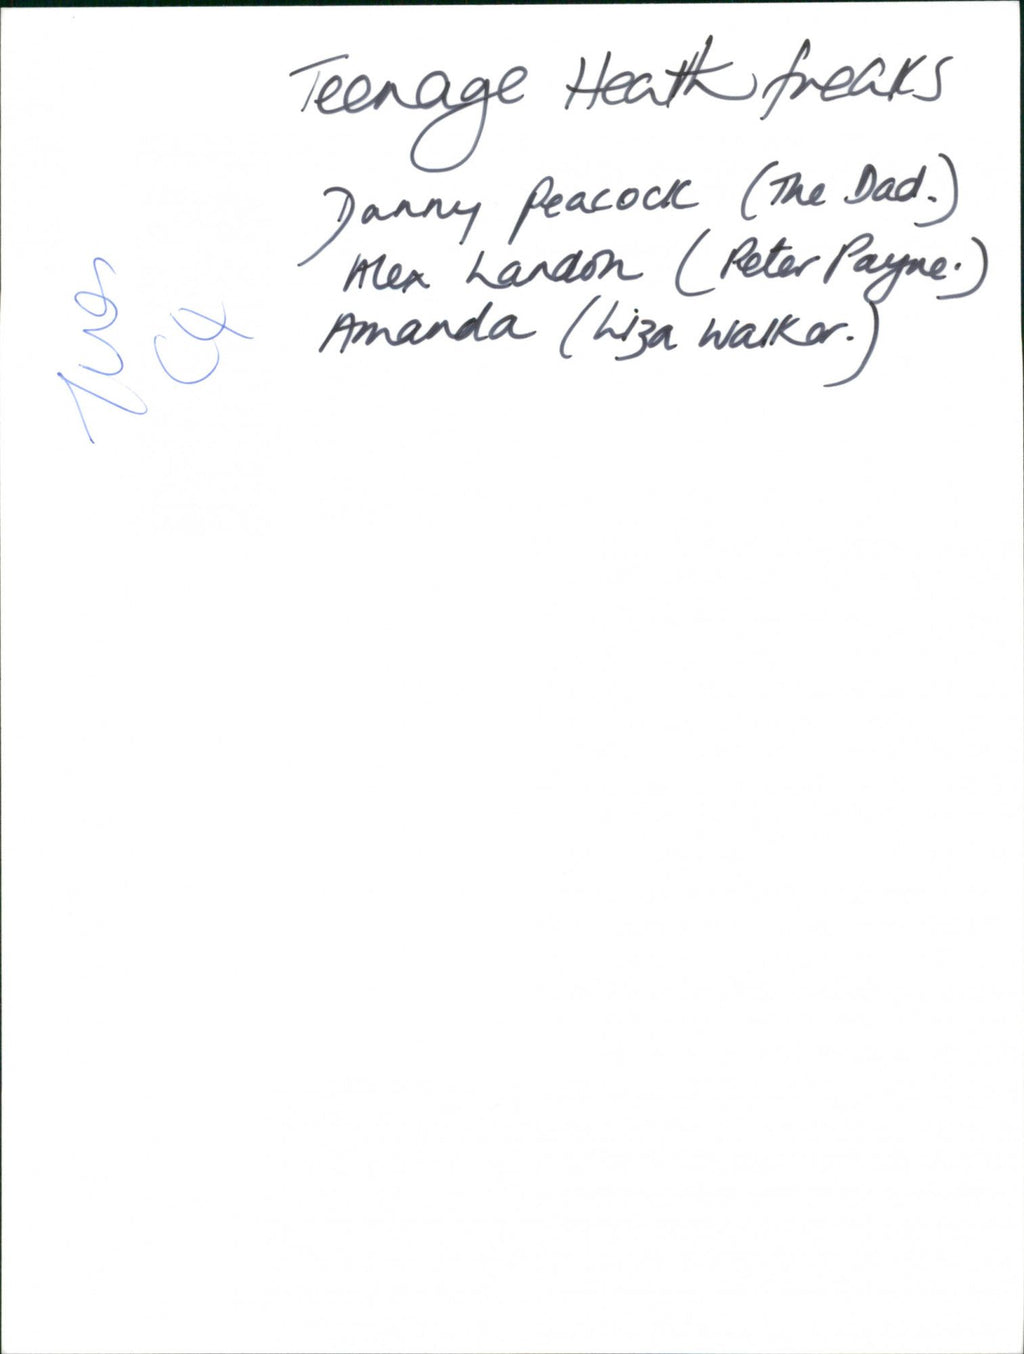 Teenage Heath freaks
Danny Peacock (The Dad.)
Alex Landon (Peter Payne.)
Amanda (Liza Walker.)
C4